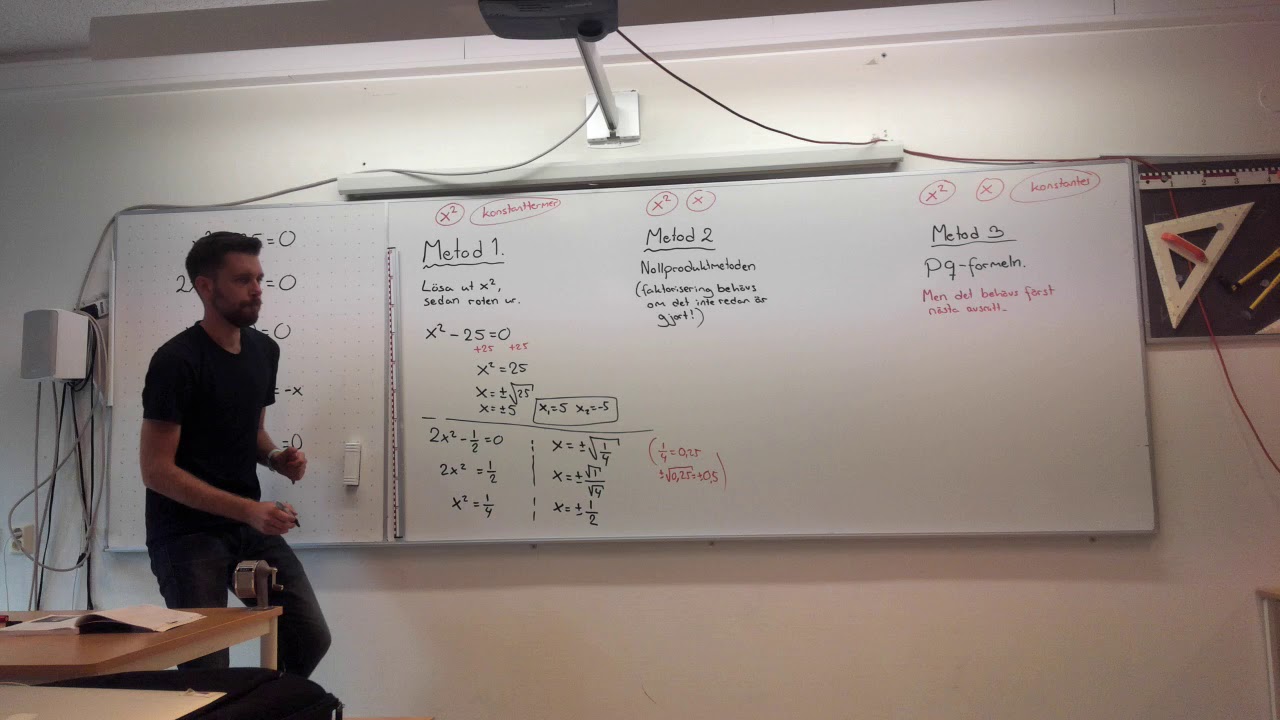 = 0
2 = 0
= 0
= -x
= 0
x² konstanttermer
Metod 1.
Lösa ut x²,
sedan roten ur.
x² - 25 = 0
+25 +25
x² = 25
x = ±√25
x = ±5 x₁ = 5 x₂ = -5
2x² - 1/2 = 0
2x² = 1/2
x² = 1/4
x = ±√(1/4)
x = ±√1/√4
x = ±1/2
(1/4 = 0,25
±√0,25 = ±0,5)
x² x
Metod 2
Nollproduktmetoden
(faktorisering behövs
om det inte redan är
gjort!)
x² x konstanter
Metod 3
pq-formeln.
Men det behövs först
nästa
1 2 3